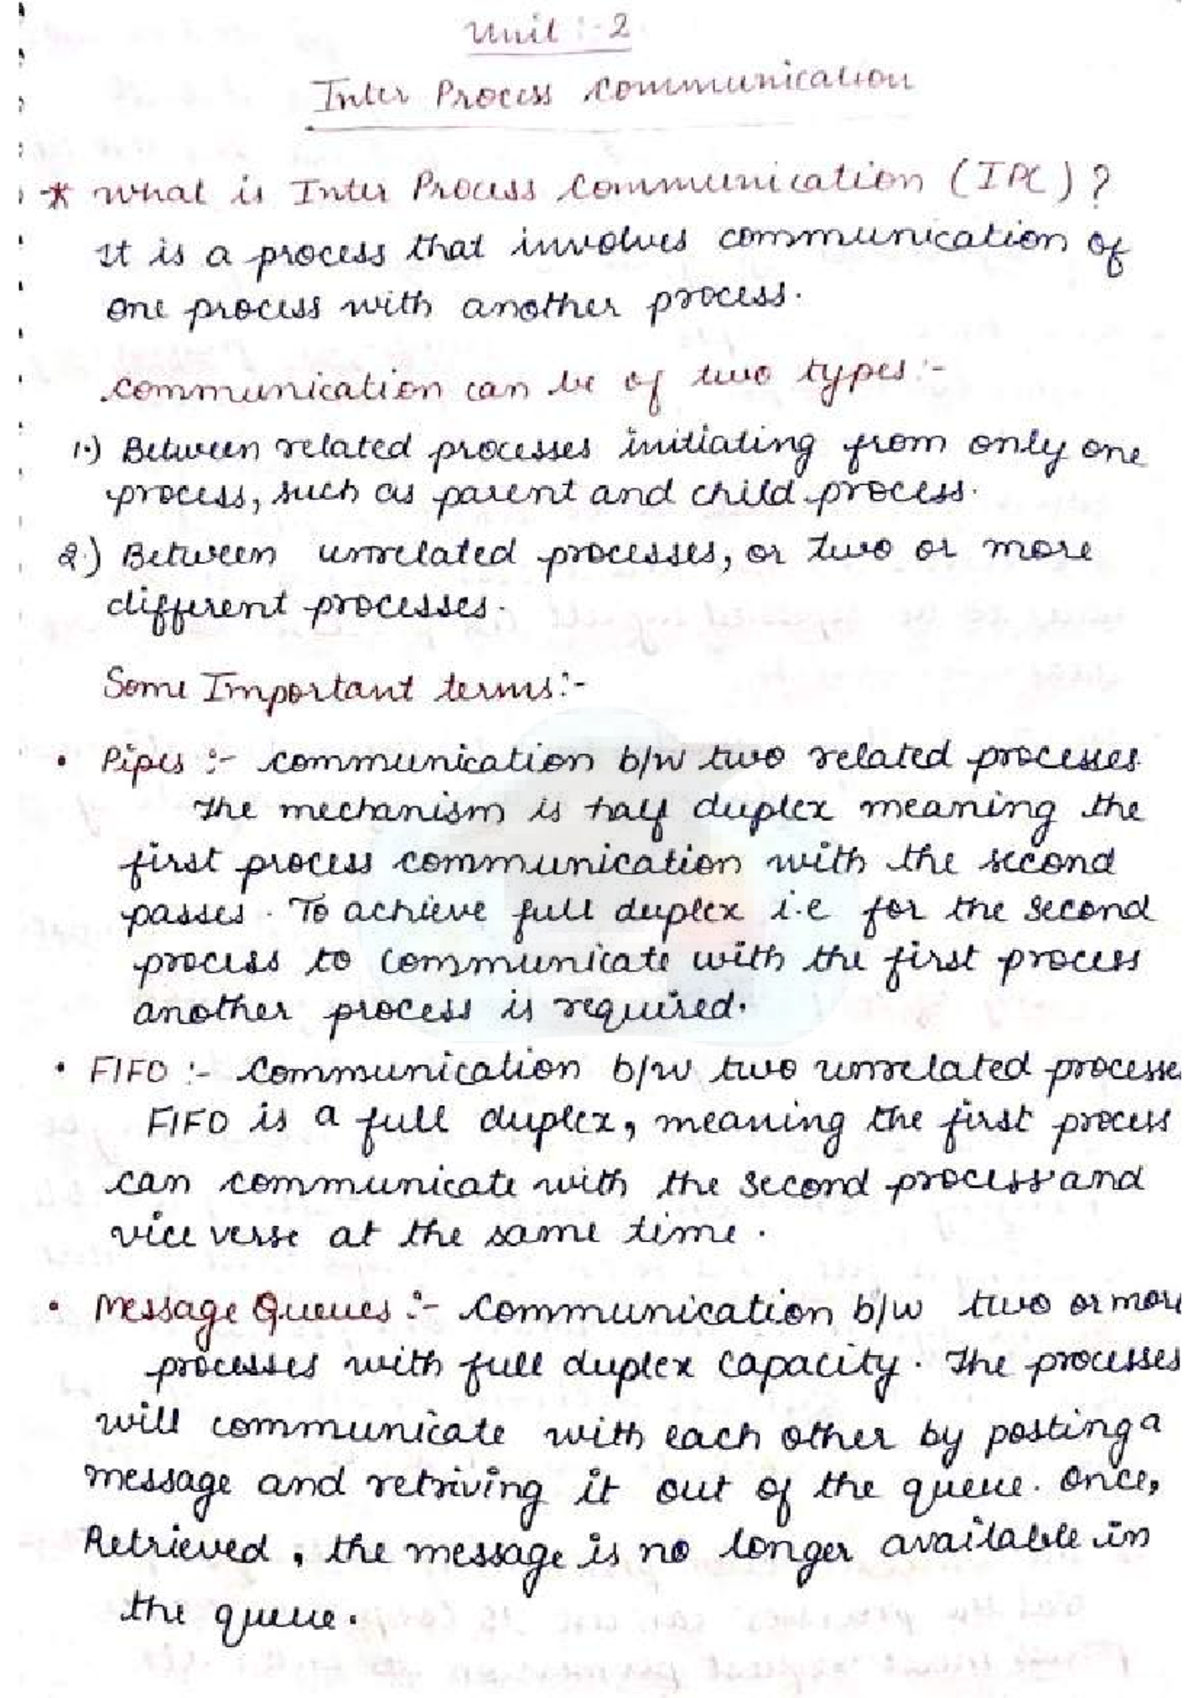 Unit :- 2
Inter Process Communication
* What is Inter Process Communication (IPC) ?
It is a process that involves communication of
one process with another process.
Communication can be of two types:-
1.) Between related processes initiating from only one
process, such as parent and child process.
2.) Between unrelated processes, or two or more
different processes.
Some Important terms:-
• Pipes :- Communication b/w two related processes
The mechanism is half duplex meaning the
first process communication with the second
passes. To achieve full duplex i.e for the second
process to communicate with the first process
another process is required.
• FIFO :- Communication b/w two unrelated processe
FIFO is a full duplex, meaning the first process
can communicate with the second process and
vice verse at the same time.
• Message Queues :- Communication b/w two or more
processes with full duplex capacity. The processes
will communicate with each other by posting a
message and retriving it out of the queue. Once,
Retrieved, the message is no longer available in
the queue.